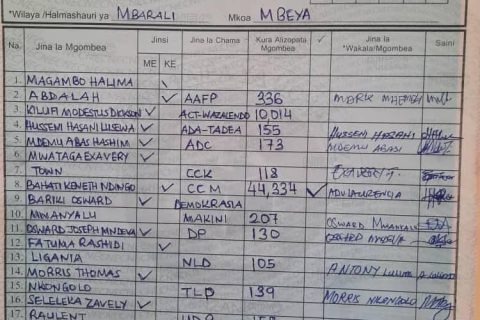 *Wilaya /Halmashauri ya MBARALI Mkoa MBEYA
Na. Jina la Mgombea Jinsi Jina la Chama Kura Alizopata Mgombea ✓ Jina la *Wakala/Mgombea Saini
ME KE
1. MAGAMBO HALIMA
2. ABDALAH ✓ AAFP 336 MARK
3. MODESTUS DICKSON ✓ ACT-WAZALENDO 10,014
4. HUSSENI HASANI LUSEWA ✓ ADA-TADEA 155 HUSSENI HASANI
5. MDEMU ABAS HASHIM ✓ ADC 173 MDEMU ABASI
6. MWATAGA EXAVERY ✓
7. TOWN CCK 118 EXAVERY T.
8. BAHATI KENETH NDINGO ✓ CCM 44,334 ✓
9. BARIKI OSWARD ✓ DEMOKRASIA
10. MWANYALU MAKINI 207 OSWARD
11. OSWARD JOSEPH MNDEVA ✓ DP 130
12. FATUMA RASHIDI ✓
13. LIGANIA NLD 105 ANTONY
14. MORRIS THOMAS ✓
15. NKONGOLO TLP 139 MORRIS NKONGOLO
16. SELELEKA ZAVELY ✓
17. RAULENT